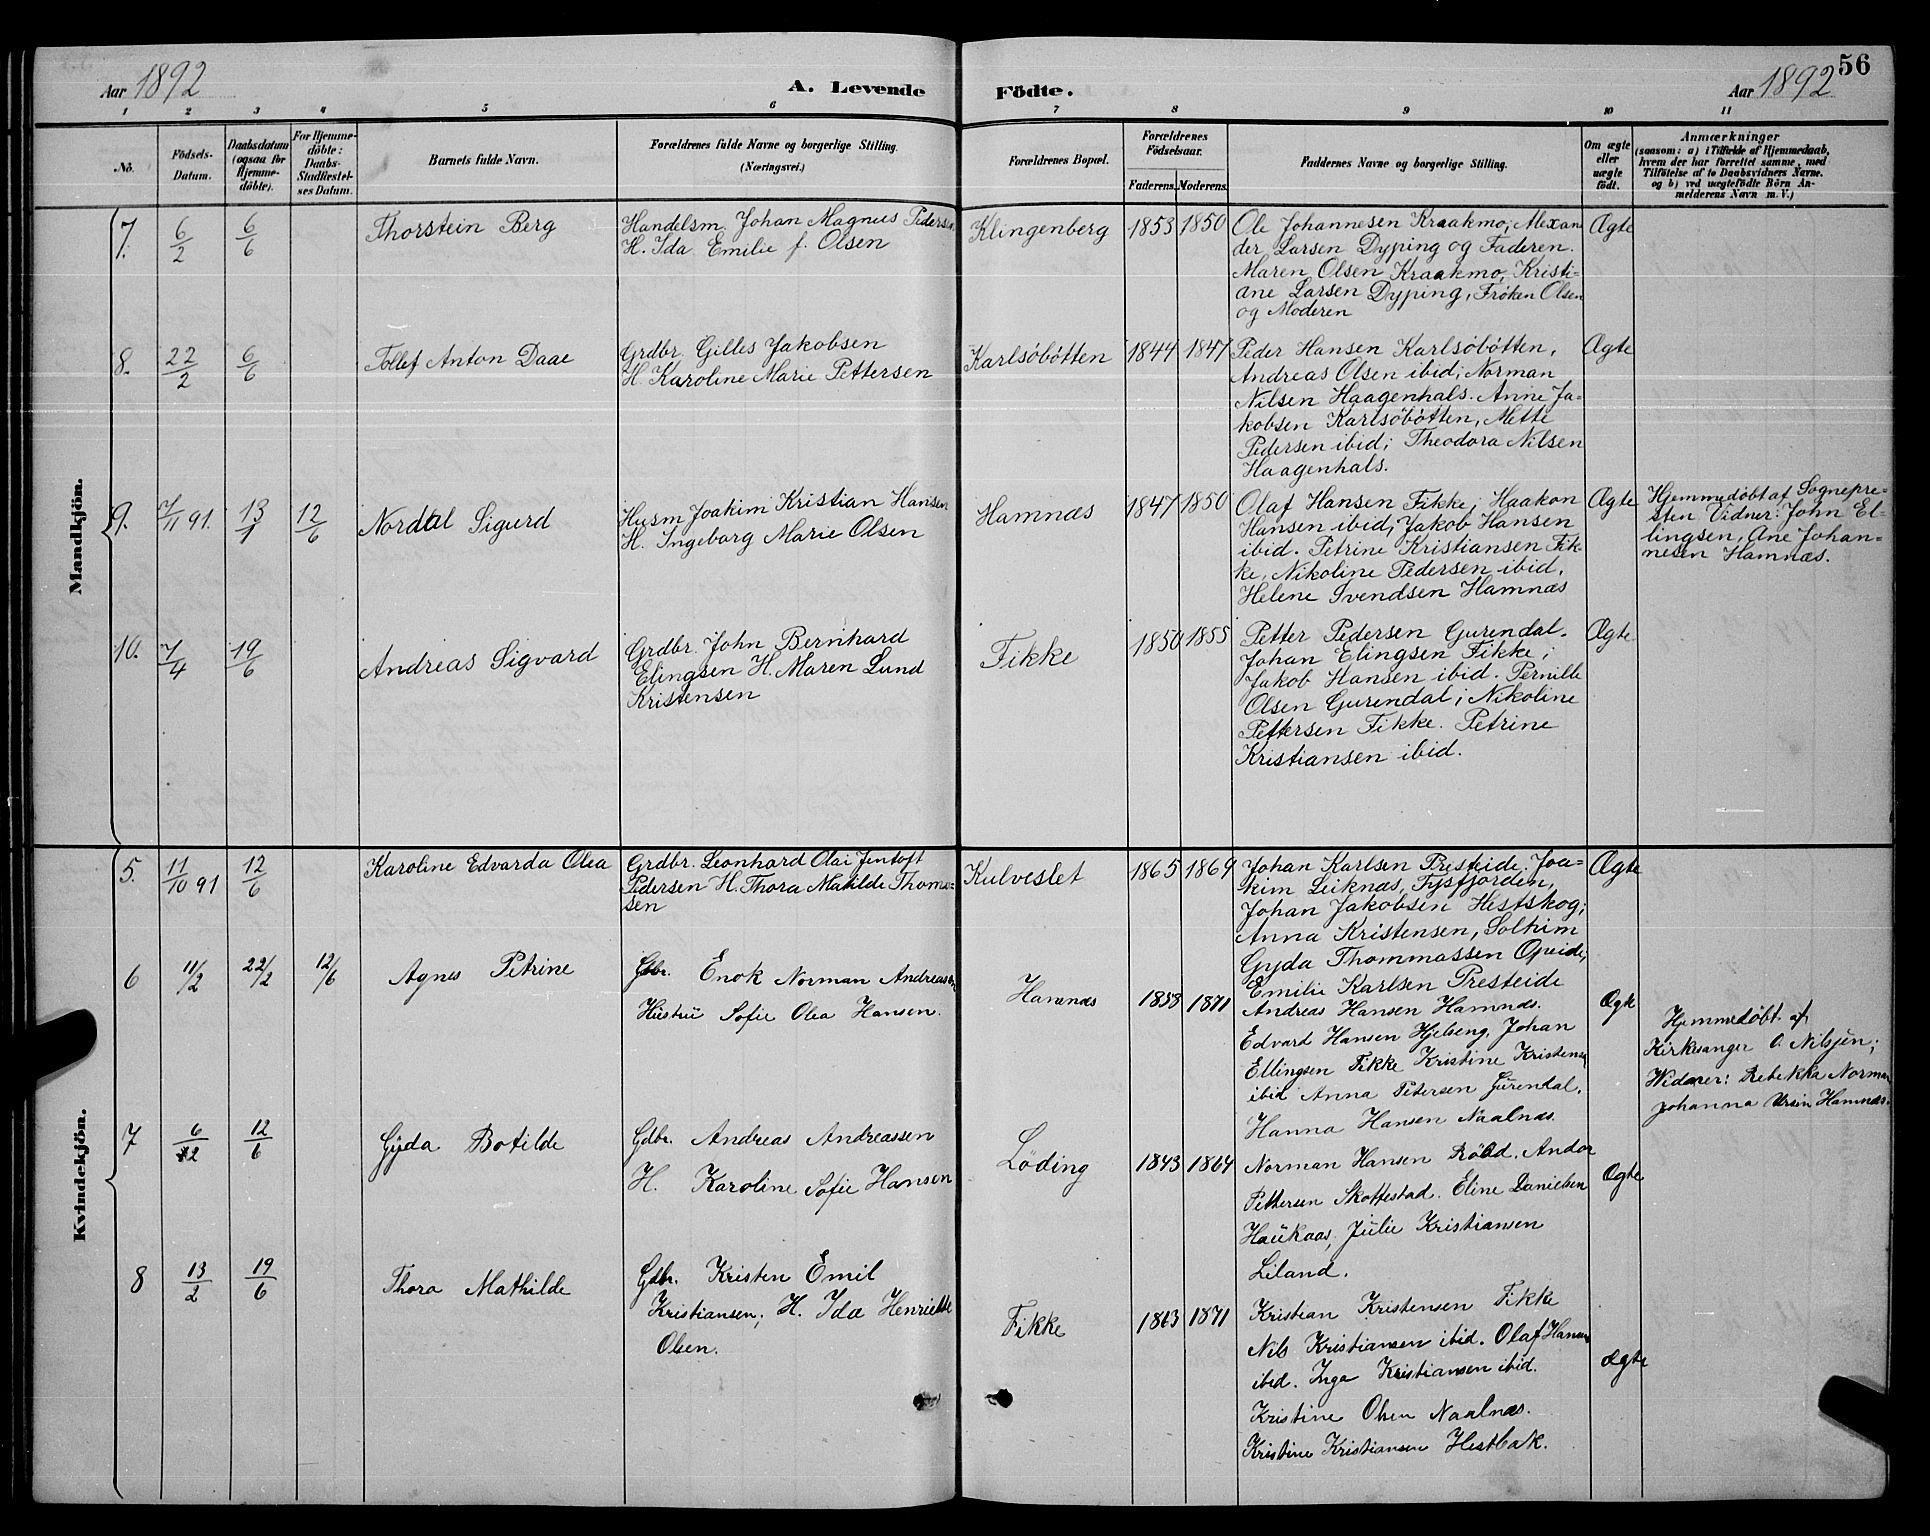 56
Aar 1892
A. Levende Födte.
Aar 1892
1 2 3 4 5 6 7 8 9 10 11
No.
Födsels-Datum.
Daabsdatum (ogsaa for Hjemme-döbte).
For Hjemme-döbte: Daabs-Stadfæstel-ses Datum.
Barnets fulde Navn.
Forældrenes fulde Navne og borgerlige Stilling.
(Næringsvei.)
Forældrenes Bopæl.
Forældrenes Födselsaar.
Faderens. Moderens.
Faddernes Navne og borgerlige Stilling.
Om ægte eller uægte födt.
Anmærkninger
(saasom: a) i Tilfælde af Hjemmedaab,
hvem der har forrettet samme, med
Tilföielse af to Daabsvidners Navne.
og b) ved uægtefödte Börn An-
melderens Navn m. V.)
Mandkjön.
7. 6/2 6/6 Thorstein Berg
Handelsm. Johan Magnus Pedersen
H. Ida Emilie f. Olsen
Klingenberg 1853 1850
Ole Johannesen Kraakmo; Alexan
der Larsen Dyping og Faderen.
Maren Olsen Kraakmo, Kristi-
ane Larsen Dyping, Frøken Olsen
og Moderen
Ægte
8. 22/2 6/6 Tollef Anton Daae
Grdbr. Gilles Jakobsen
H. Karoline Marie Pettersen
Karlsöbötten 1844 1847
Peder Hansen Karlsöbötten,
Andreas Olsen ibid; Norman
Nilsen Haagenhals. Anne Ja-
kobsen Karlsöbötten, Mette
Pedersen ibid; Theodora Nilsen
Haagenhals.
Ægte
9. 7/11 91. 13/1 12/6 Nordal Sigurd
Husm Joakim Kristian Hansen
H. Ingeborg Marie Olsen
Hamnæs 1847 1850
Olaf Hansen Fikke; Haakon
Hansen ibid; Jakob Hansen
ibid. Petrine Kristiansen Fik
ke, Nikoline Pedersen ibid,
Helene Svendsen Hamnæs
Ægte
Hjemmedöbt af Sognepre-
sten Vidner: John El-
lingsen, Ane Johan-
nesen Hamnæs.
10. 7/4 19/6 Andreas Sigvard
Grdbr. John Bernhard
Elingsen H. Maren Lund
Kristensen
Fikke 1850 1855
Petter Pedersen Gurendal.
Johan Elingsen Fikke;
Jakob Hansen ibid. Pernille
Olsen Gurendal; Nikoline
Pettersen Fikke. Petrine
Kristiansen ibid.
Ægte
Kvindekjön.
5. 11/10 91 12/6 Karoline Edvarda Olea
Grdbr. Leonhard Olai Jentoft
Pedersen H. Thora Matilde Thoma-
sen
Kulveslet 1865 1869
Johan Karlsen Presteide; Joa-
kim Leiknæs, Tysfjorden,
Johan Jakobsen Hestskog;
Anna Kristensen, Solheim
Gyda Thommassen Opeide,
Emilie Karlsen Presteide
Ægte
6 11/2 22/2 12/6 Agnes Petrine
Gdbr. Enok Norman Andreassen
Hustru Sofie Olea Hansen.
Hamnæs 1858 1871
Andreas Hansen Hamnæs.
Edvard Hansen Hjelseng, Johan
Ellingsen Fikke Kristine Kristensen
ibid Anna Petersen Gurendal.
Hanna Hansen Naalnæs.
Ægte
Hjemmedøbt af
Kirkesanger O. Nilsen;
Widner: Rebekka Norman
Johanna Ursin Hamnæs.
7 6/2 12/6 Gyda Botilde
Gdbr. Andreas Andreassen
H. Karoline Sofie Hansen
Löding 1843 1864
Norman Hansen Andor
Pettersen Skottestad. Eline Danielsen
Haukaas, Julie Kristiansen
Liland.
Ægte
8 13/2 19/6 Thora Mathilde
Gdbr. Kristen Emil
Kristiansen; H. Ida Henriette
Olsen.
Fikke 1863 1871
Kristian Kristensen Fikke
Nils Kristiansen ibid. Olaf Hansen
ibid. Inga Kristiansen ibid.
Kristine Olsen Naalnæs.
Kristine Kristiansen Hestbak.
Ægte